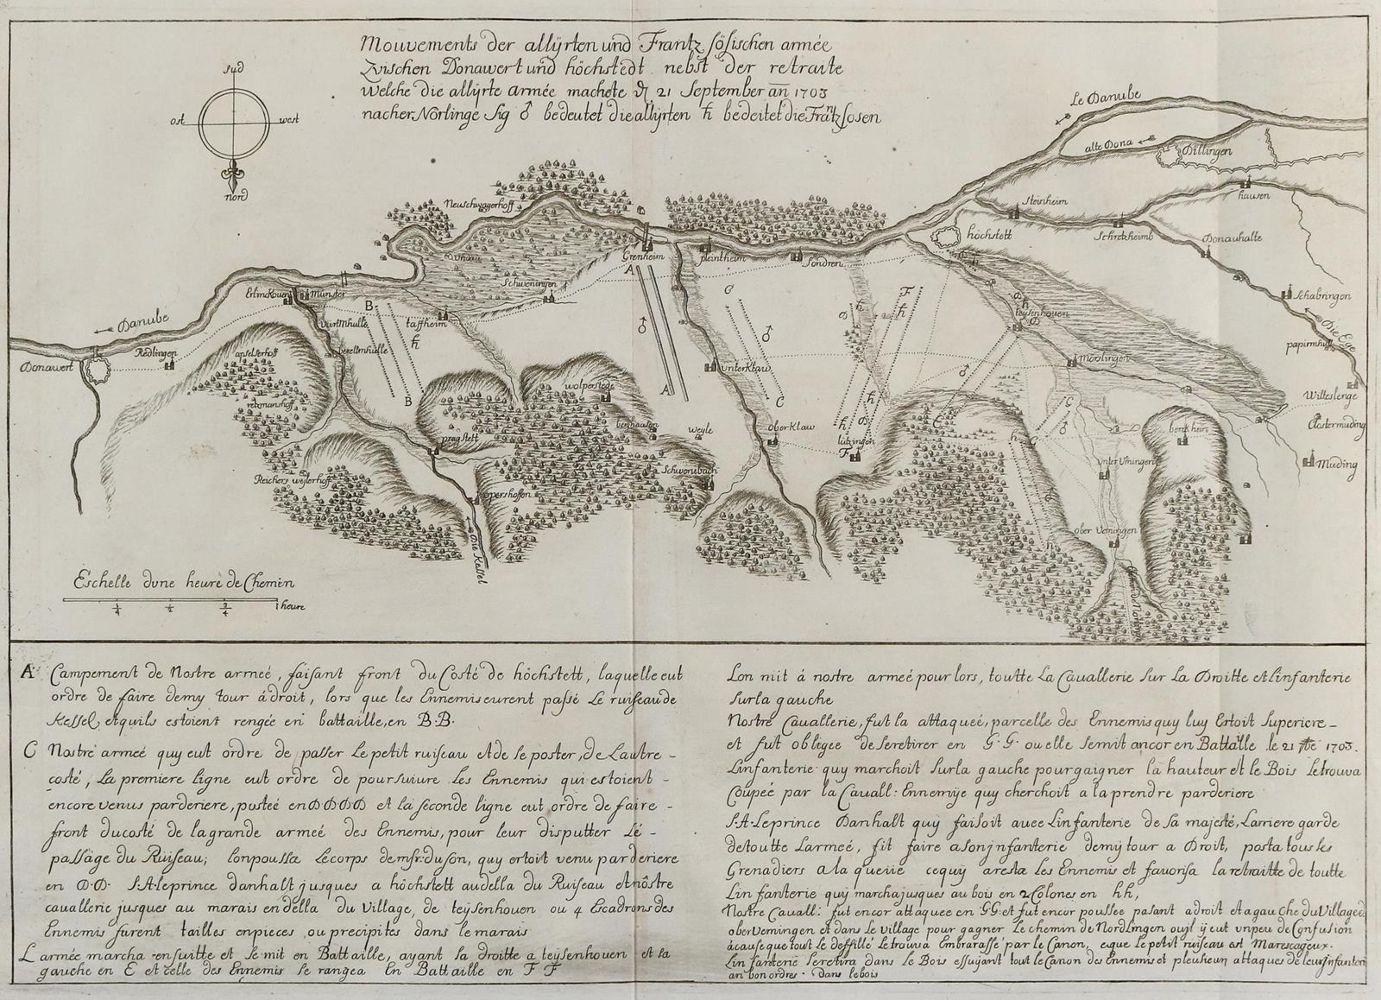 Mouvements der allÿrten und Frantzsösischen armée
Zvischen Donawert und höchstedt nebst der retraite
Welche die allÿrte armée machete 21 September an 1703
nacher Nörlinge Sig ♂ bedeutet die allÿrten ♄ bedeitet die Frantzsosen
sud
ost west
nord
Le Danube
alte Dona
Dillingen
Steinheim
hausen
höchstett
Schretzheimb
Donauhalte
Schabringen
Die Ege
papirmhull
Wittislenge
Muding
Neuschwagerhoff
Grenheim
plintheim
Sondren
Schweningen
Erlinckouen
Münster
taffheim
Danube
Donawert
Redlingen
teysenhouen
Mörslingen
unterklaw
ober Klaw
wolperstede
weyle
Schwonbach
lutzingen
pragstett
Reichers weslerhoff
Die Kessel
ober Veningen
A A B B C C F F
Eschelle dvne heure de Chemin
¼ ½ ¾ 1 heure
A Campement de Nostre armeé, faisant front du Costé de höchstett, laquelle eut
ordre de faire demy tour á droit, lors que les Ennemis eurent passé Le ruiseau de
Kessel, et quils estoient rengée en battaille, en B.B.
C Nostre armeé quy eut ordre de passer Le petit ruiseau et de se poster, de Lautre -
costé, La premiere ligne eut ordre de poursuiure Les Ennemis qui estoient -
encore venus parderiere, posteé en D D D D et la seconde ligne eut ordre de faire -
front du costé de la grande armeé des Ennemis, pour leur disputter Le -
passage du Ruiseau; Lonpoussa Le corps de msr: du son, quy ertoit venu parderiere
en D.D. S:A:leprince danhalt jusques a höchstett audella du Ruiseau et nôstre
cauallerie jusques au marais en della du Village, de teysenhouen ou 4 Escadrons des
Ennemis furent tailles enpieces ou precipités dans le marais
L armée marcha ensuitte et se mit en Battaille, ayant la droitte a teysenhouen et la
gauche en E et celle des Ennemis se rangea en Battaille en F F
Lon mit á nostre armeé pour lors, toutte La Cauallerie Sur La Droitte et linfanterie
Sur la gauche
Nostre Cauallerie, fut la attaqueé, parcelle des Ennemis quy luy Ertoit Superiere -
et fut obligee de se retirer en G.G. ou elle semit ancor en Battaille le 21 7bre 1703.
Linfanterie quy marchoit Sur la gauche pour gaigner la hauteur et le Bois se trouva
Coupeé par la Cauall: Ennemije quy cherchoit a la prendre parderiere
S.A. Leprince Danhalt quÿ faisoit auee Linfanterie de Sa majesté, Larriere garde
de toutte Larmeé, fit faire a son jnfanterie demÿ tour a Droit, posta tous les
Grenadiers a la queüe cequÿ aresta les Ennemis et fauorisa la retraitte de toutte
Linfanterie quÿ marcha jusques au bois en 2 Colones en hh,
Nostre Cauall: fut encor attaquee en GG et fut encor poussee pasant a droit et a gauche du Village d
ober Vemingen et dans Le Village pour gagner Le chemin de Nordlingen ou il ÿ eut vn peu de Confusion
a cause que tout Le deffillé Le trouva Embarassé par le Canon, e que Le petit ruiseau est Marescageux.
Linfanterie Seretira dans Le Bois essuyant tout le Canon des Ennemis et pleusieurs attaques de leur jnfanterie
an bon ordres. dans le bois